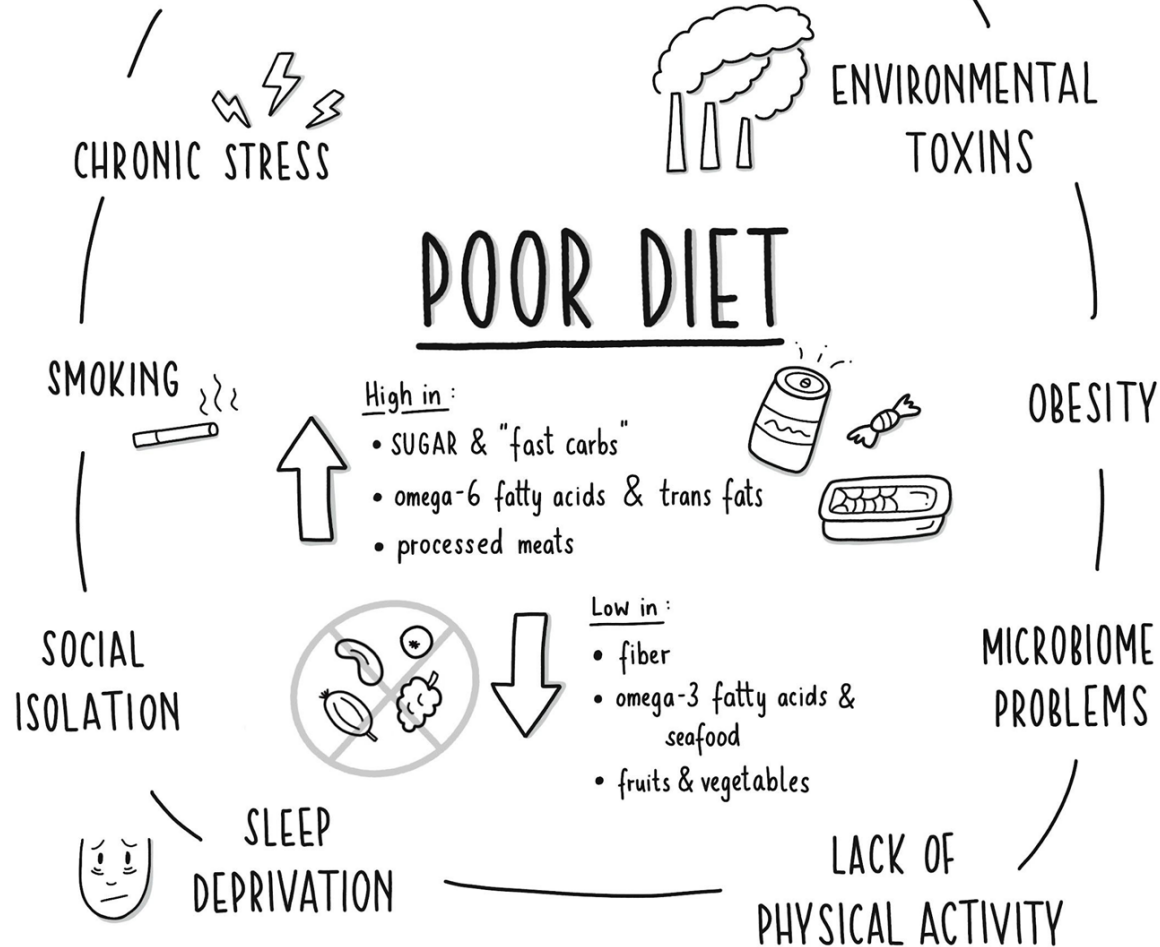 CHRONIC STRESS
ENVIRONMENTAL
TOXINS
POOR DIET
SMOKING
High in :
• SUGAR & "fast carbs"
• omega-6 fatty acids & trans fats
• processed meats
OBESITY
Low in :
• fiber
• omega-3 fatty acids &
seafood
• fruits & vegetables
SOCIAL
ISOLATION
MICROBIOME
PROBLEMS
SLEEP
DEPRIVATION
LACK OF
PHYSICAL ACTIVITY